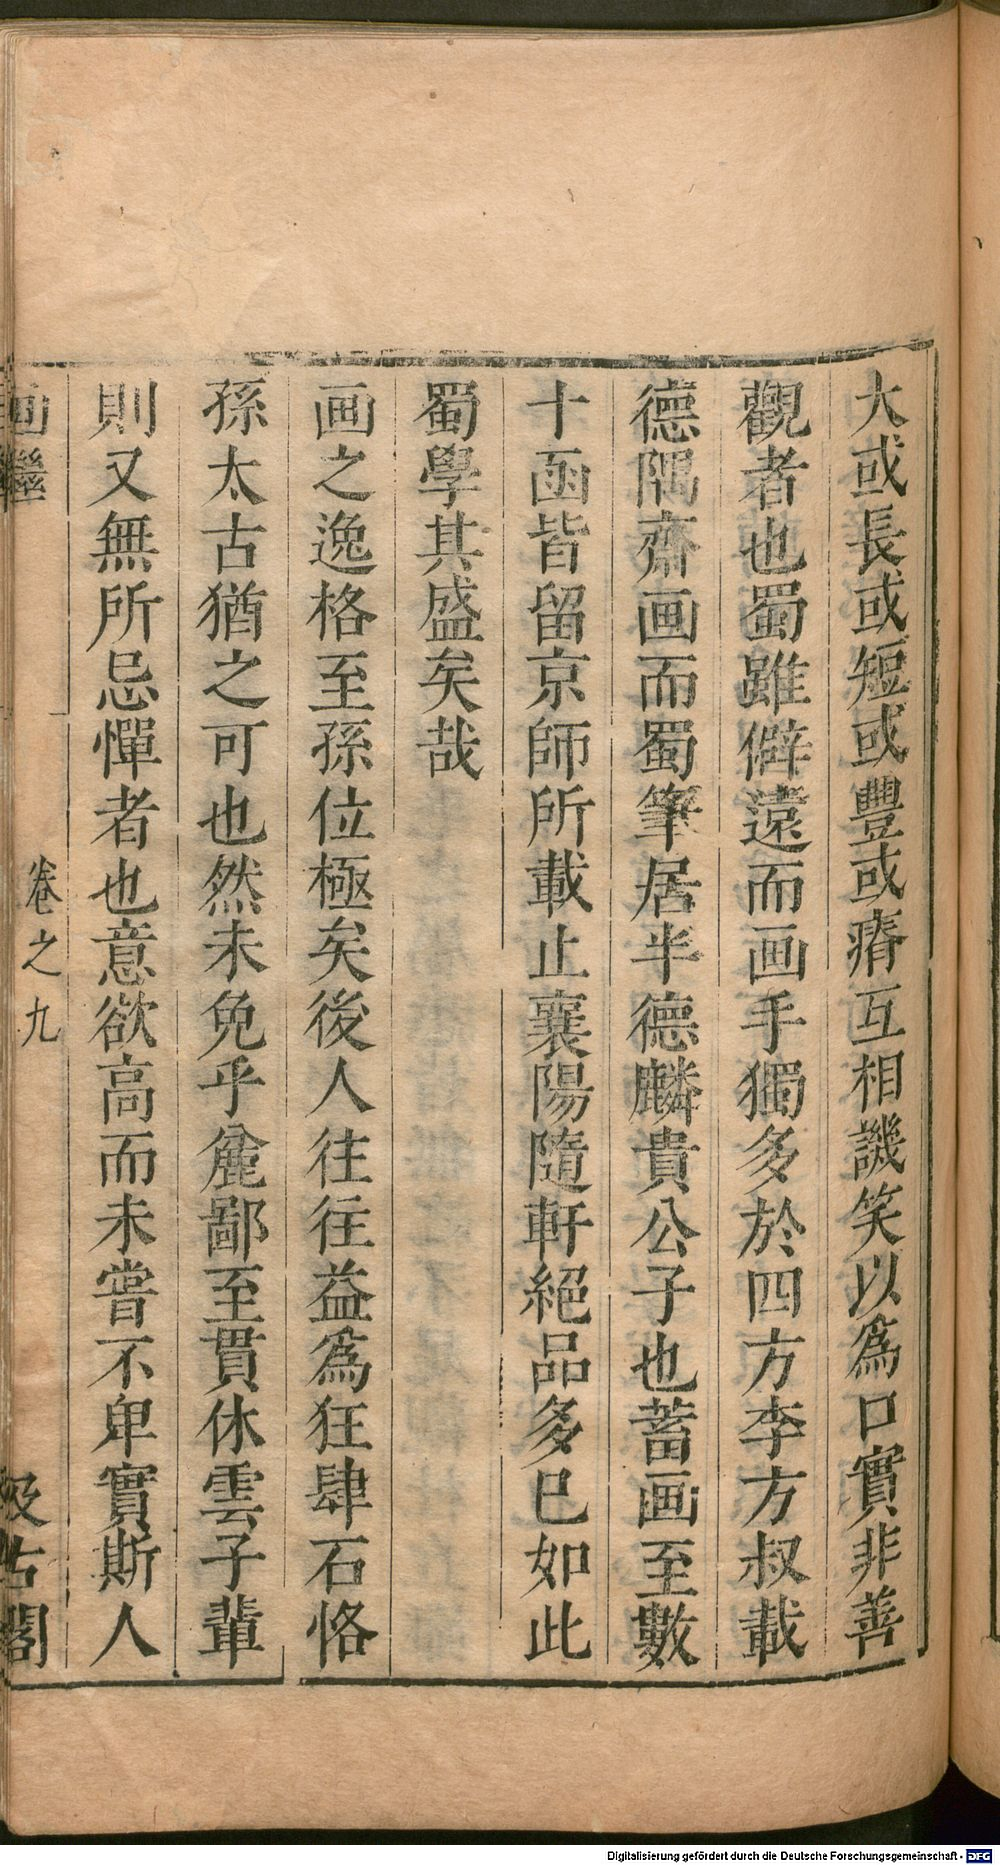 大或長或短或豐或瘠互相譏笑以爲口實非善
觀者也蜀雖僻遠而画手獨多於四方李方叔載
德隅齋画而蜀筆居半德麟貴公子也蓄画至數
十函皆留京師所載止襄陽隨軒絕品多已如此
蜀學其盛矣哉
画之逸格至孫位極矣後人往往益爲狂肆石恪
孫太古猶之可也然未免乎麄鄙至貫休雲子輩
則又無所忌憚者也意欲高而未嘗不卑實斯人
画繼
卷之九
汲古閣
Digitalisierung gefördert durch die Deutsche Forschungsgemeinschaft - DFG